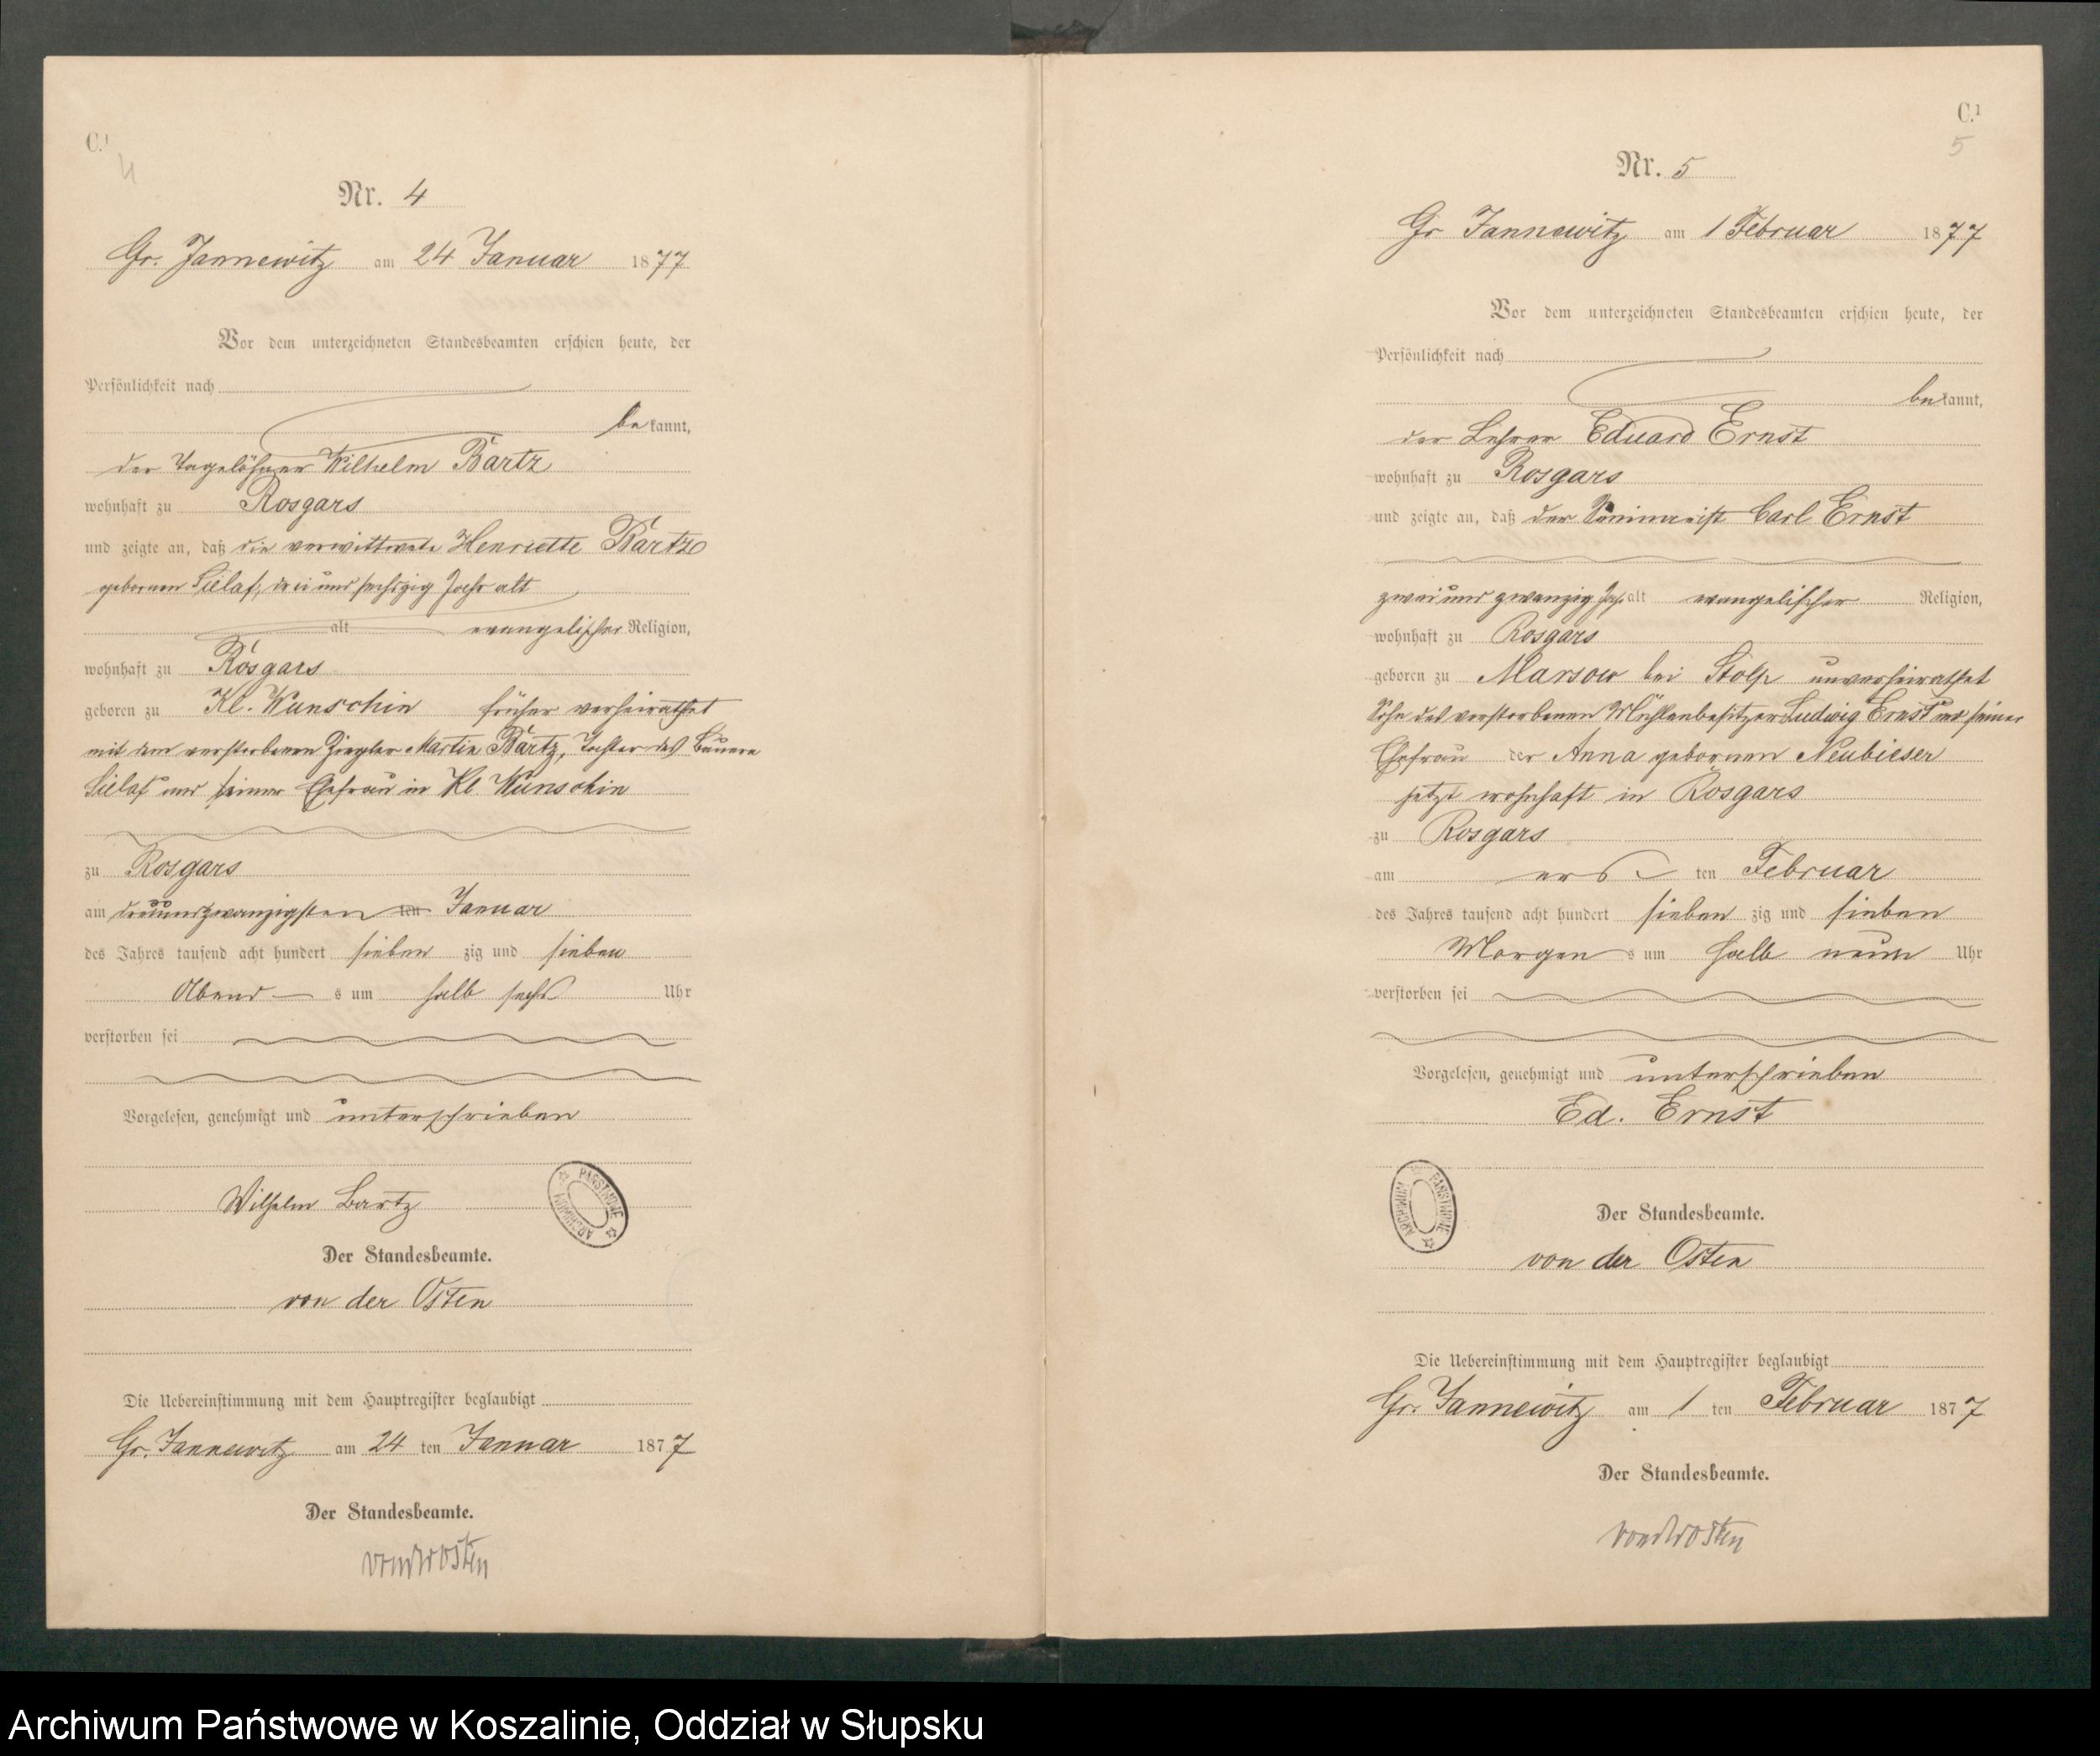 C.¹
4
Nr. 4
Gr. Jannewitz am 24 Januar 1877
Vor dem unterzeichneten Standesbeamten erschien heute, der
Persönlichkeit nach
bekannt,
der Tagelöhner Wilhelm Bartz
wohnhaft zu Rosgars
und zeigte an, daß die verwittwete Henriette Bartz
gebornen Sielaf, drei und sechszig Jahr alt
alt evangelischer Religion,
wohnhaft zu Rosgars
geboren zu Kl. Wunschin früher verheirathet
mit dem verstorbenen Ziegler Martin Bartz, Tochter des Bauern
Sielaf und seiner Ehefrau in Kl. Wunschin
zu Rosgars
am dreiundzwanzigsten ten Januar
des Jahres tausend acht hundert sieben zig und sieben
Abend s um halb sechs Uhr
verstorben sei
Vorgelesen, genehmigt und unterschrieben
Wilhelm Bartz
ARCHIWUM PAŃSTWOWE
Der Standesbeamte.
von der Osten
Die Uebereinstimmung mit dem Hauptregister beglaubigt
Gr. Jannewitz am 24 ten Januar 1877
Der Standesbeamte.
von der Osten
C.¹
5
Nr. 5
Gr Jannewitz am 1 Februar 1877
Vor dem unterzeichneten Standesbeamten erschien heute, der
Persönlichkeit nach
bekannt,
der Lehrer Eduard Ernst
wohnhaft zu Rosgars
und zeigte an, daß der Seminarist Carl Ernst
zwei und zwanzig Jahr alt evangelischer Religion,
wohnhaft zu Rosgars
geboren zu Marsow bei Stolp unverheirathet
Sohn des verstorbenen Mühlenbesitzer Ludwig Ernst und seiner
Ehefrau der Anna gebornen Neubieser
jetzt wohnhaft in Rosgars
zu Rosgars
am ers ten Februar
des Jahres tausend acht hundert sieben zig und sieben
Morgen s um halb neun Uhr
verstorben sei
Vorgelesen, genehmigt und unterschrieben
Ed. Ernst
ARCHIWUM PAŃSTWOWE
Der Standesbeamte.
von der Osten
Die Uebereinstimmung mit dem Hauptregister beglaubigt
Gr. Jannewitz am 1 ten Februar 1877
Der Standesbeamte.
von der Osten
Archiwum Państwowe w Koszalinie, Oddział w Słupsku